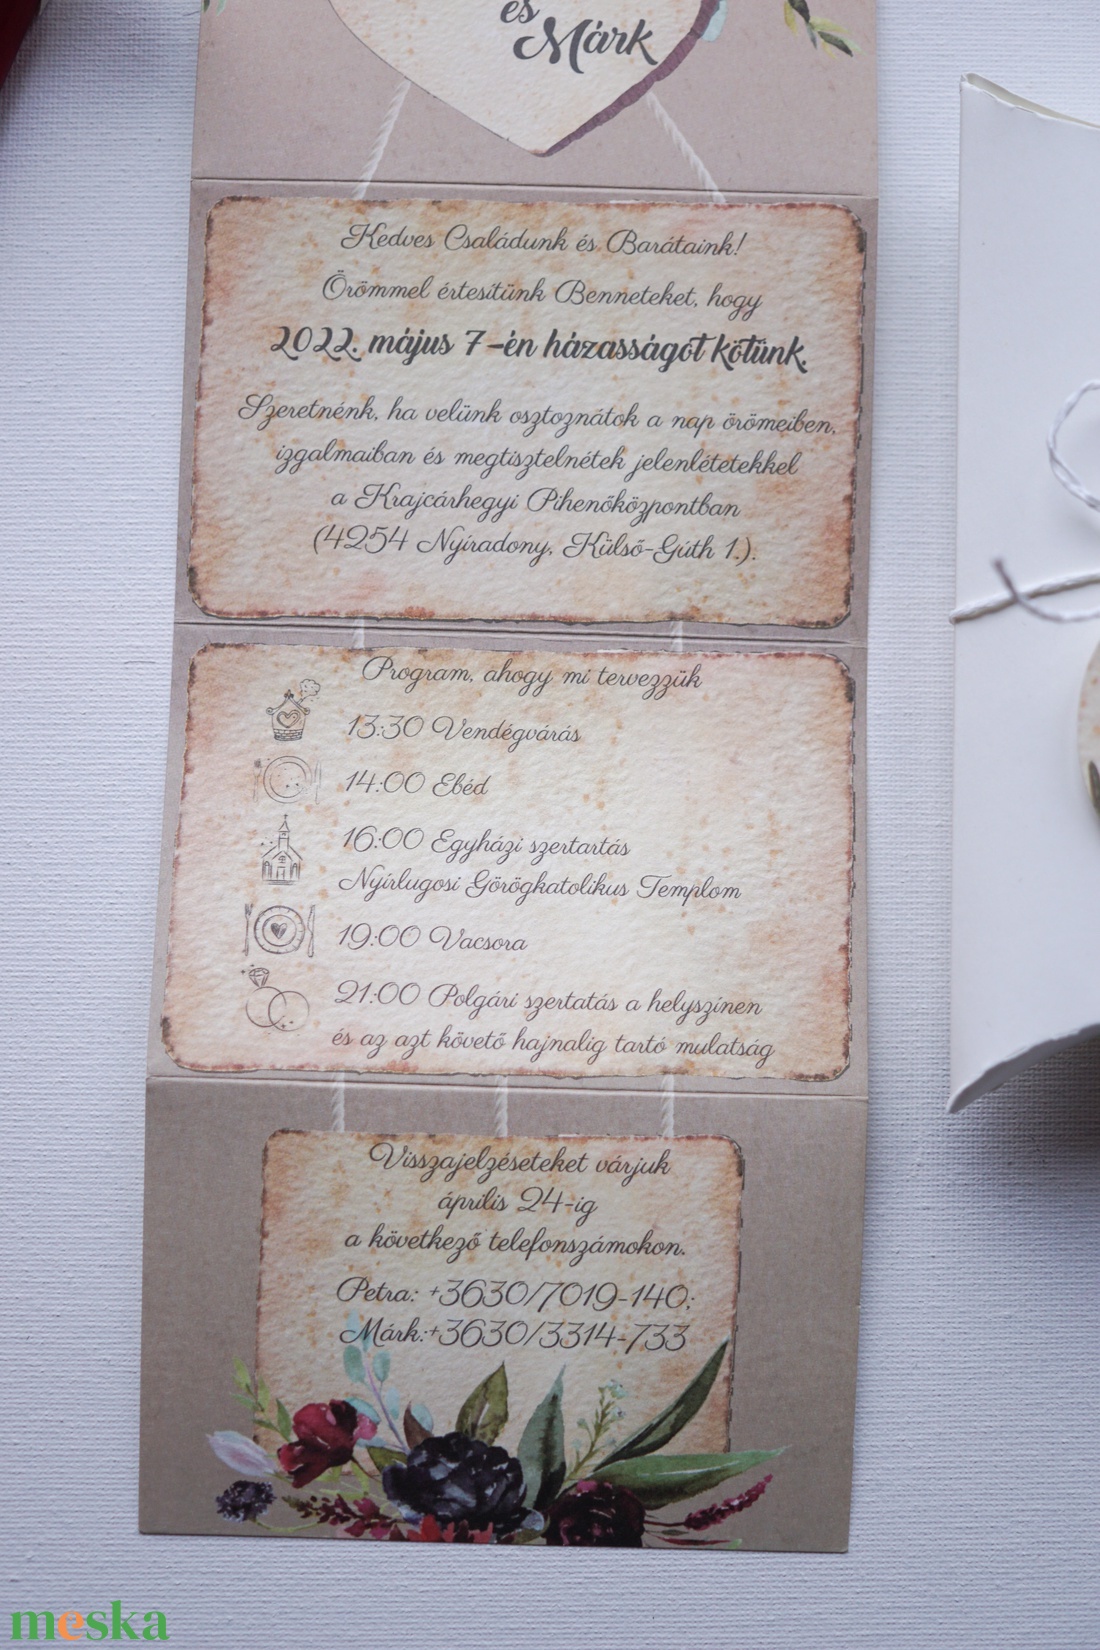 és
Márk
Kedves Családunk és Barátaink!
Örömmel értesítünk Benneteket, hogy
2022. május 7-én házasságot kötünk.
Szeretnénk, ha velünk osztoznátok a nap örömeiben,
izgalmaiban és megtisztelnétek jelenlétetekkel
a Krajcárhegyi Pihenőközpontban
(4254 Nyíradony, Külső-Gúth 1.).
Program, ahogy mi tervezzük
13:30 Vendégvárás
14:00 Ebéd
16:00 Egyházi szertartás
Nyírlugosi Görögkatolikus Templom
19:00 Vacsora
21:00 Polgári szertatás a helyszínen
és az azt követő hajnalig tartó mulatság
Visszajelzéseteket várjuk
április 24-ig
a következő telefonszámokon.
Petra: +3630/7019-140;
Márk:+3630/3314-733
meska